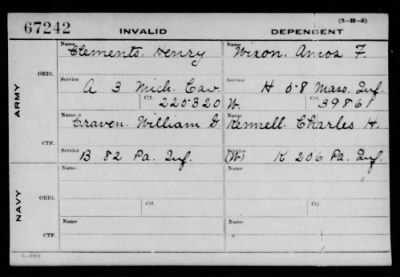 (3-H-5)
67242 INVALID DEPENDENT
Name Name
Clements. Henry Wixon. Amos F.
ORIG. Service Service
A 3 Mich. Cav. H 58 Mass. Inf.
Ctf. Ctf.
220320 W. 39861
ARMY
Name Name
Craven. William G. Kennell. Charles H.
CTF. Service Service
B 82 Pa. Inf. (W) K 206 Pa. Inf.
NAVY
Name Name
ORIG. Ctf. Ctf.
Name Name
CTF.